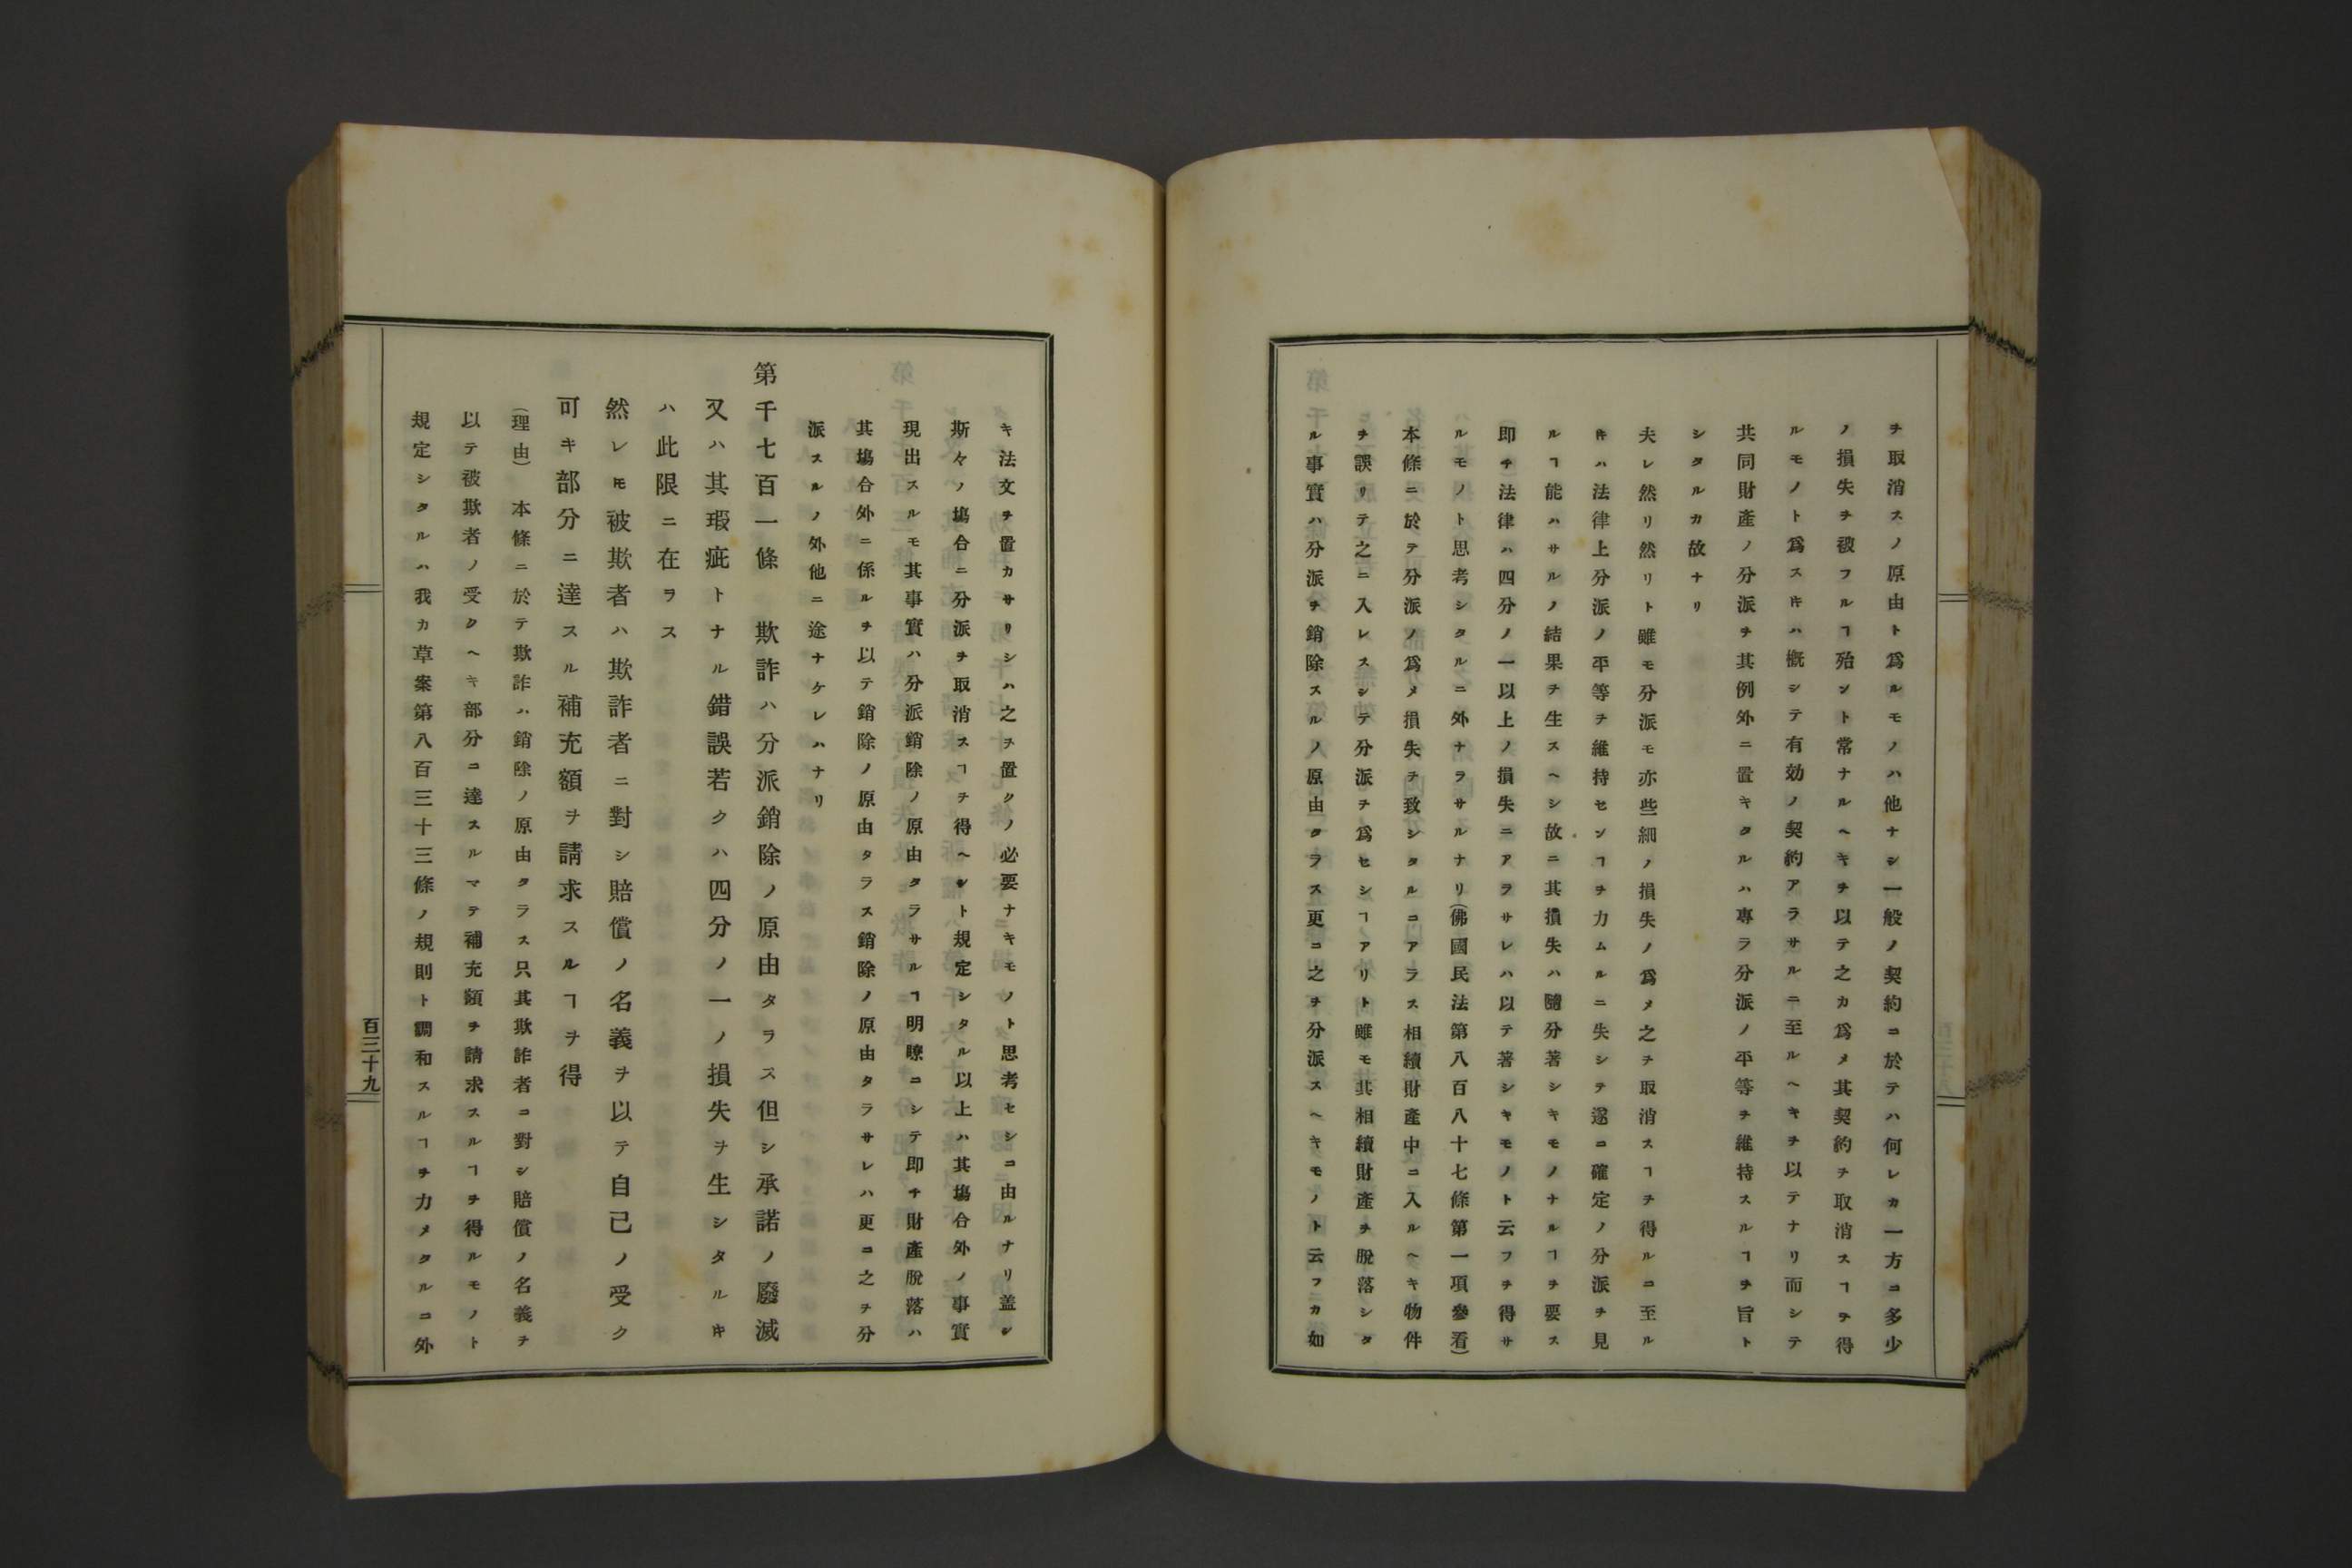 ヲ取消スノ原由ト爲ルモノハ他ナシ一般ノ契約ニ於テハ何レカ一方ニ多少
ノ損失ヲ被フルヿ殆ント常ナルヘキヲ以テ之カ爲メ其契約ヲ取消スヿヲ得
ルモノト爲スキハ概シテ有効ノ契約アラサルニ至ルヘキヲ以テナリ而シテ
共同財產ノ分派ヲ其例外ニ置キタルハ專ラ分派ノ平等ヲ維持スルヿヲ旨ト
シタルカ故ナリ
夫レ然リ然リト雖モ分派モ亦些細ノ損失ノ爲メ之ヲ取消スヿヲ得ルニ至ル
キハ法律上分派ノ平等ヲ維持センヿヲ力ムルニ失シテ遂ニ確定ノ分派ヲ見
ルヿ能ハサルノ結果ヲ生スヘシ故ニ其損失ハ隨分著シキモノナルヿヲ要ス
即チ法律ハ四分ノ一以上ノ損失ニアラサレハ以テ著シキモノト云フヲ得サ
ルモノト思考シタルニ外ナラサルナリ(佛國民法第八百八十七條第一項參看)
本條ニ於テ分派ノ爲メ損失ヲ致シタルニアラス相續財產中ニ入ルヘキ物件
ヲ誤リテ之ニ入レスシテ分派ヲ爲セシヿアリト雖モ其相續財產ヲ脫落シタ
ル事實ハ分派ヲ銷除スルノ原由タラス更ニ之ヲ分派スヘキモノト云フカ如
キ法文ヲ置カサリシハ之ヲ置クノ必要ナキモノト思考セシニ由ルナリ蓋シ
斯々ノ塲合ニ分派ヲ取消スヿヲ得ヘシト規定シタル以上ハ其塲合外ノ事實
現出スルモ其事實ハ分派銷除ノ原由タラサルヿ明瞭ニシテ即チ財產脫落ハ
其塲合外ニ係ルヲ以テ銷除ノ原由タラス銷除ノ原由タラサレハ更ニ之ヲ分
派スルノ外他ニ途ナケレハナリ
第千七百一條 欺詐ハ分派銷除ノ原由タラス但シ承諾ノ廢滅
又ハ其瑕疵トナル錯誤若クハ四分ノ一ノ損失ヲ生シタルキ
ハ此限ニ在ヲス
然レ𪜈被欺者ハ欺詐者ニ對シ賠償ノ名義ヲ以テ自己ノ受ク
可キ部分ニ達スル補充額ヲ請求スルヿヲ得
(理由) 本條ニ於テ欺詐ハ銷除ノ原由タラス只其欺詐者ニ對シ賠償ノ名義ヲ
以テ被欺者ノ受クヘキ部分ニ達スルマテ補充額ヲ請求スルヿヲ得ルモノト
規定シタルハ我カ草案第八百三十三條ノ規則ト調和スルヿヲ力メタルニ外
百三十九